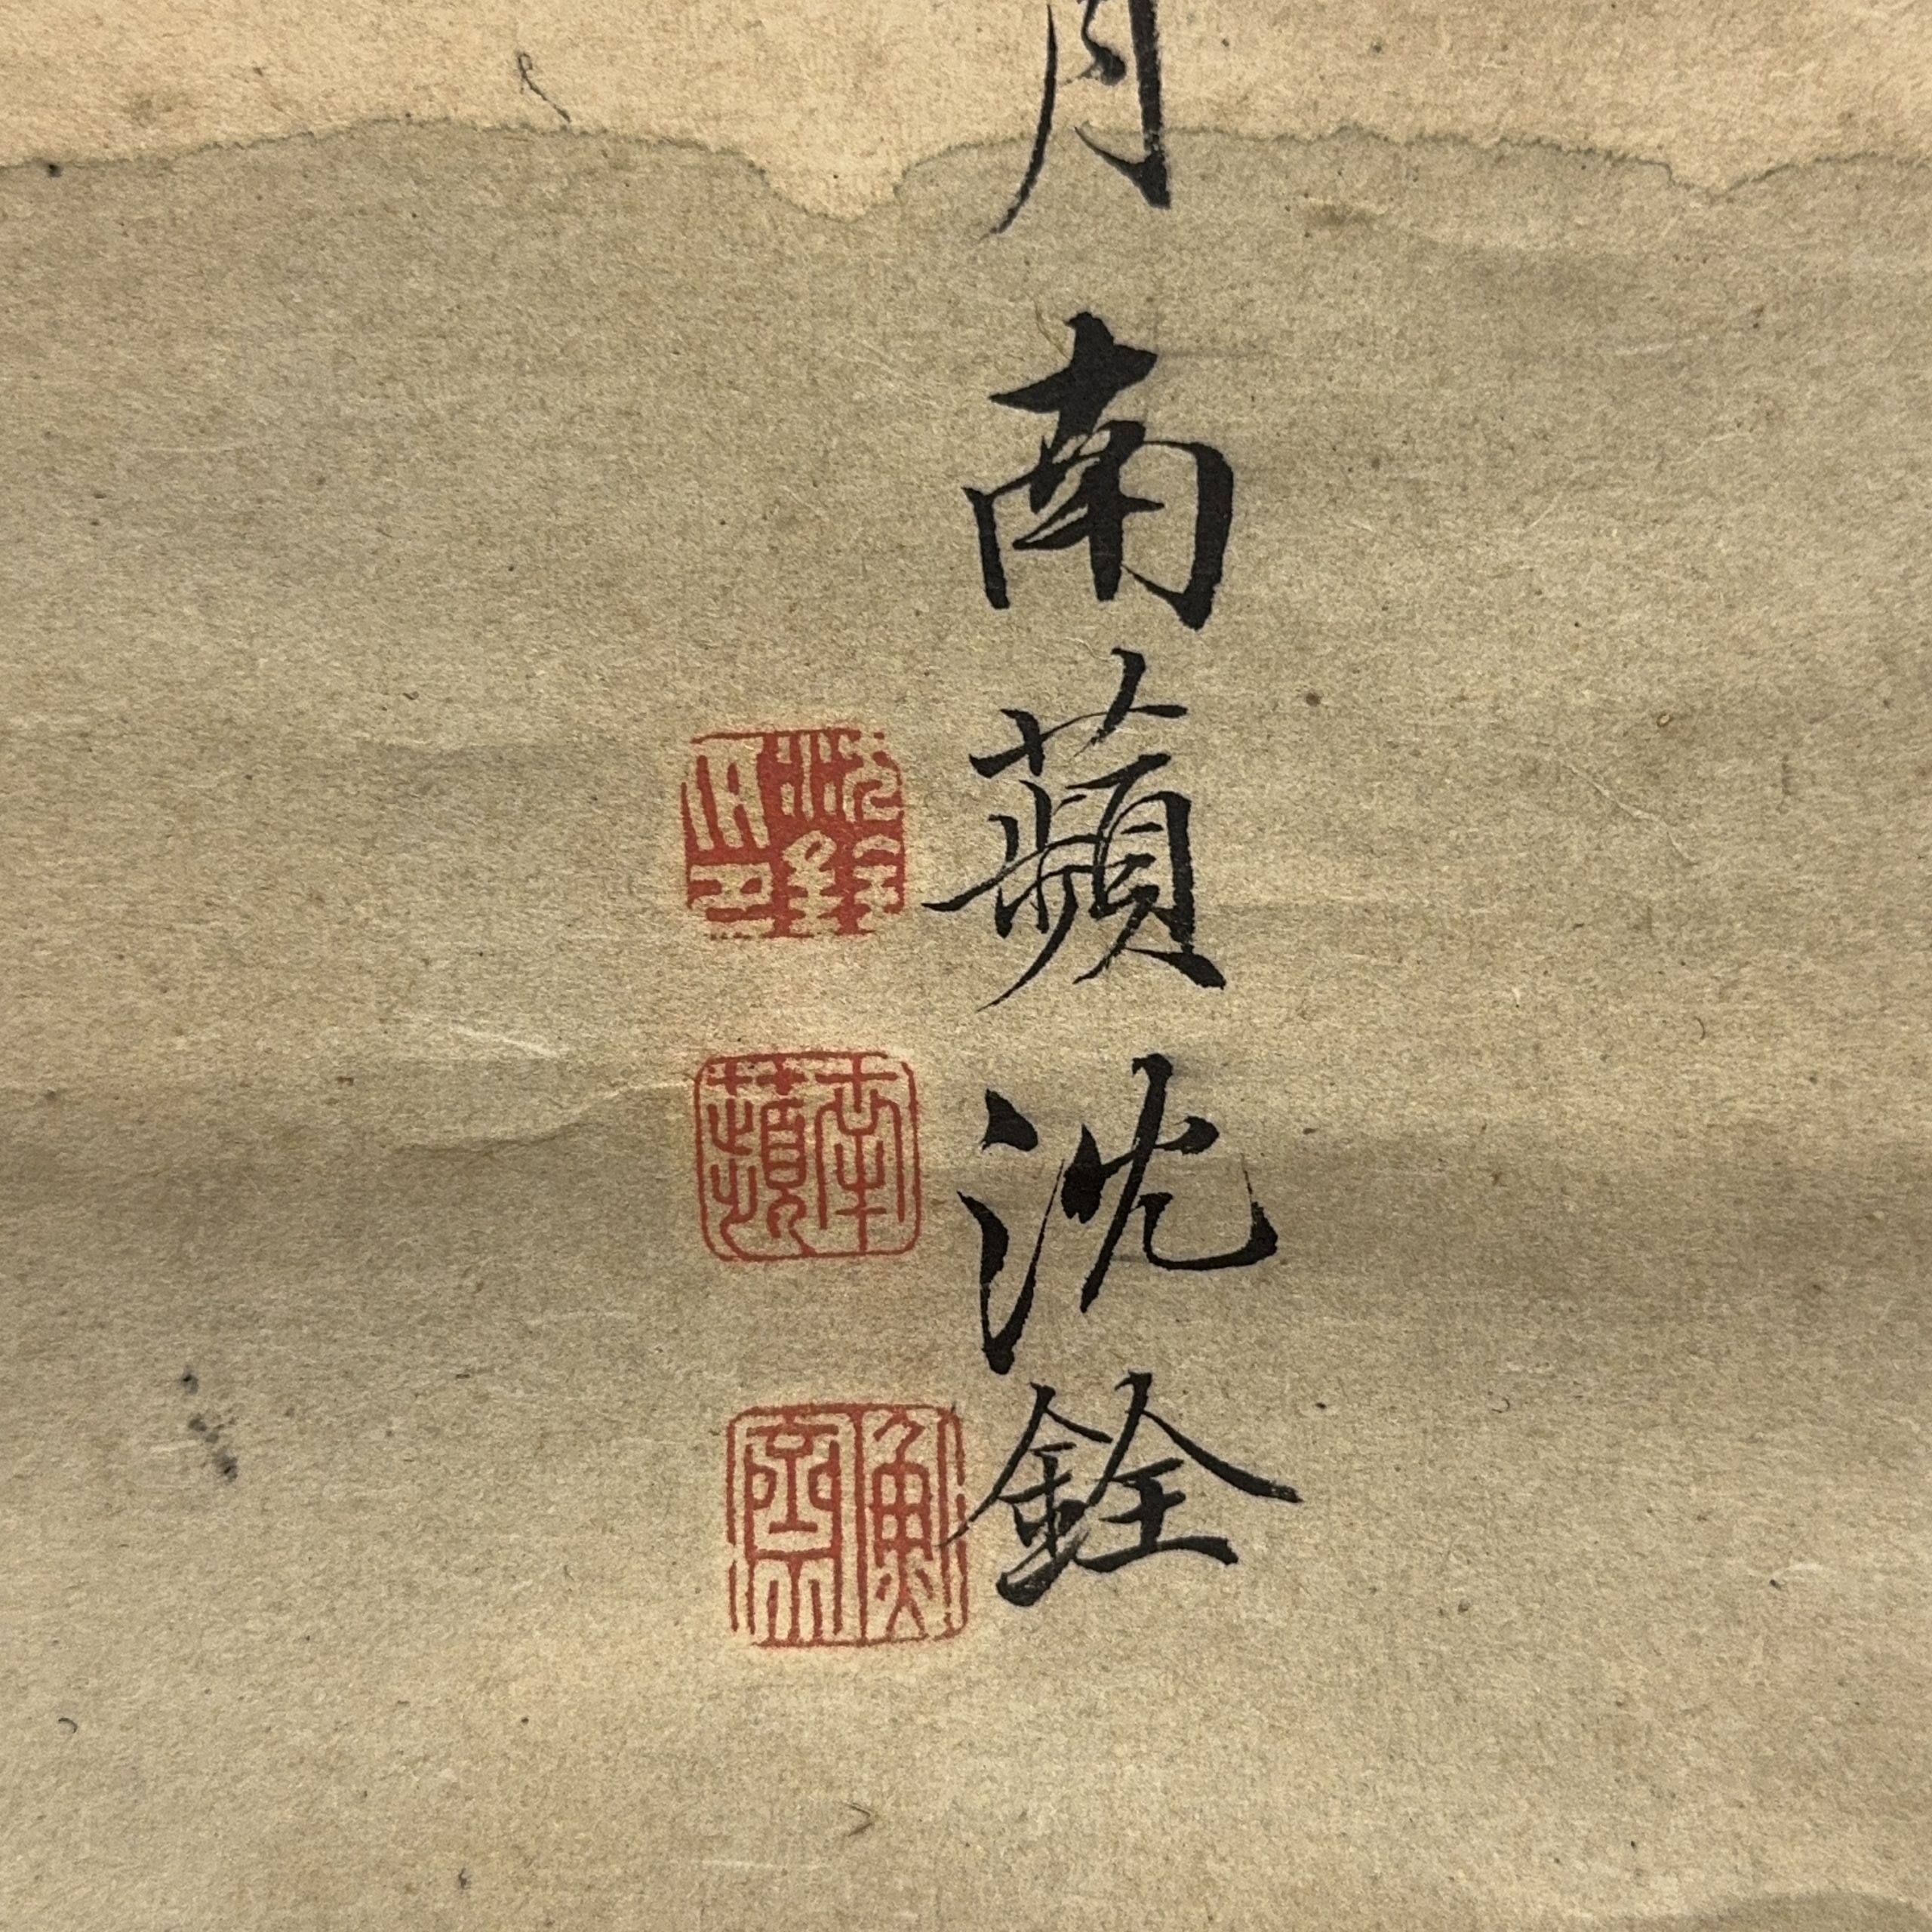 月南蘋沈銓
沈銓之印
南蘋
衡齋